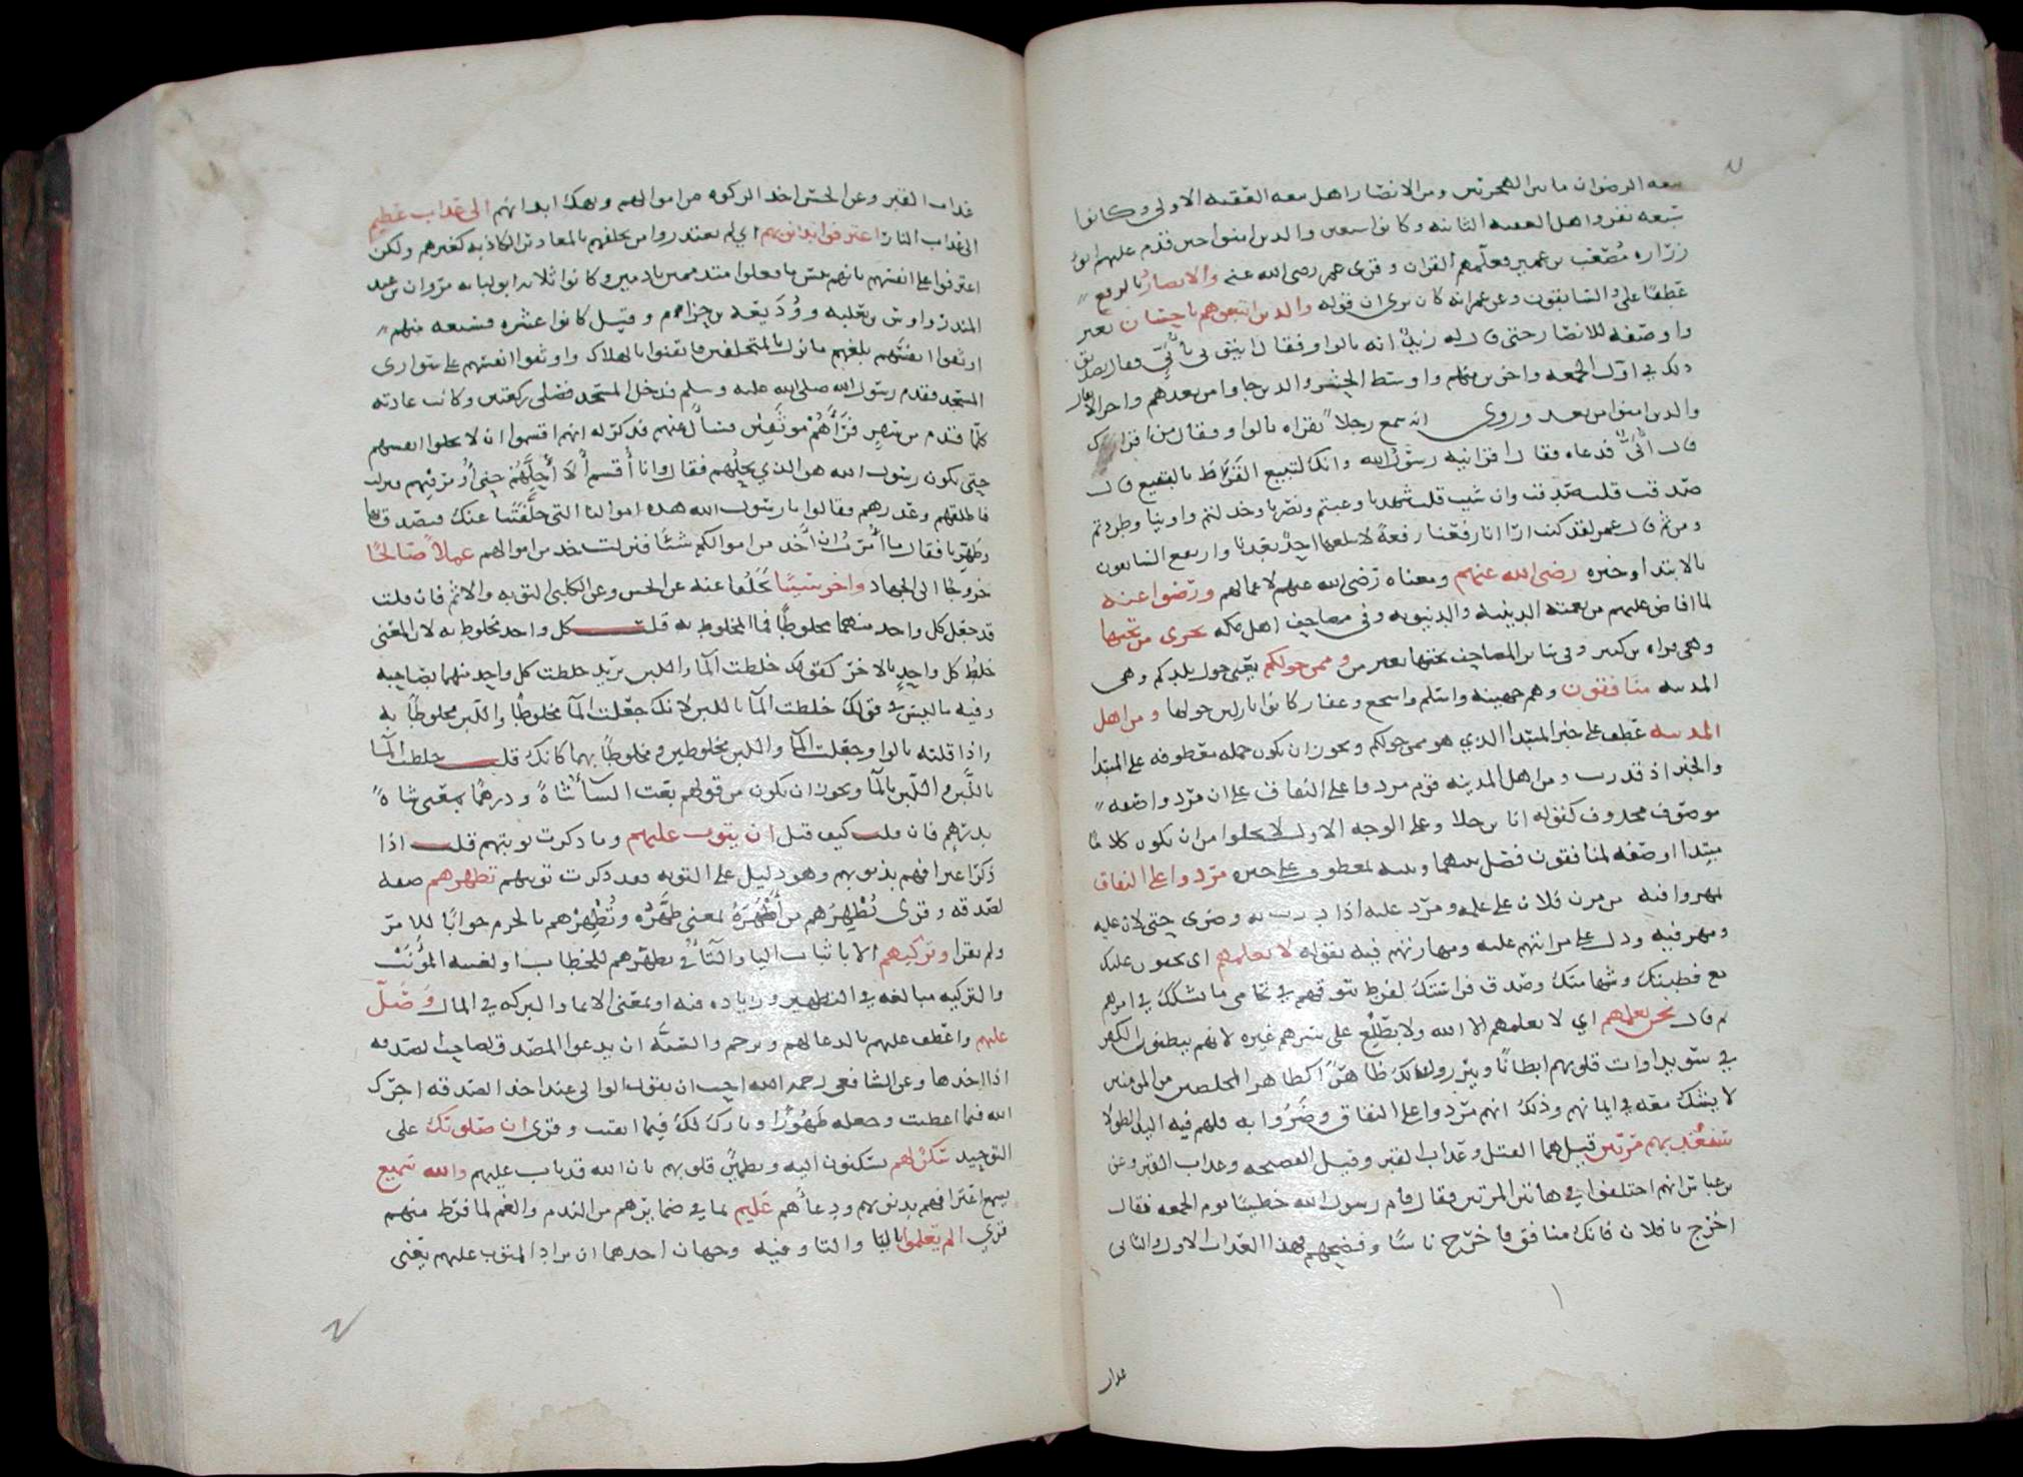 بيعه الرضوان ما بين الهجرتين ومن الانصار اهل بيعه العقبه الاولى وكانوا
سبعه نفر واهل العقبه الثانيه وكانوا سبعين والذين امنوا حين قدم عليهم ابو
زراره مصعب بن عمير فعلمهم القران وقرى عمر رضى الله عنه والانصار بالرفع
عطفا على والسابقون وعن عمر انه كان يرى ان قوله والذين اتبعوهم باحسان بغير
واو صفه للانصار حتى قال له زيد انه بالواو فقال ايتونى بابى فقال تصديق
ذلك في اول الجمعه واخرين منهم واوسط الحشر والذين جاوا من بعدهم واخر الانفال
والذين امنوا من بعد وروى انه سمع رجلا يقراه بالواو فقال من اقراك
قال ابى فدعاه فقال اقرانيه رسول الله وانك لتبيع القرظ بالبقيع قال
صدقت وان شيت قلت شهدنا وغبتم ونصرنا وخذلتم واوينا وطردتم
ومن ثم قال عمر لقد كنت ارانا رفعنا رفعة لا يبلغها احد بعدنا وارتفع السابقون
بالابتدا وخبره رضى الله عنهم ومعناه رضى الله عنهم لاعمالهم ورضوا عنه
لما افاض عليهم من نعمته الدينيه والدنيويه وفي مصاحف اهل مكه تجرى من تحتها
وهي قراه بن كثير وفي ساير المصاحف تحتها بغير من وممن حولكم يعنى حول بلدكم وهي
المدينه منافقون وهم جهينه واسلم واشجع وغفار كانوا نازلين حولها ومن اهل
المدينه عطف على خبر المبتدا الذي هو ممن حولكم ويجوز ان يكون جمله معطوفه على المبتدا
والخبر اذ قدرت ومن اهل المدينه قوم مردوا على النفاق على ان مردوا صفه
موصوف محذوف كقوله انا بن جلا وعلى الوجه الاول لا يخلوا من ان يكون كلاما
مبتدا او صفه لمنافقون فصل بينهما وبينه بمعطوف على خبره مردوا على النفاق
تمهروا فيه من مرن فلان على عمله ومرد عليه اذا درب به وضرى حتى لان عليه
ومهر فيه ودل على مرانتهم عليه ومهارتهم فيه بقوله لا تعلمهم اى يخفون عليك
مع فطنتك وشهامتك وصدق فراستك لفرط تنوقهم في تحامى ما يشكك في امرهم
ثم قال نحن نعلمهم اي لا يعلمهم الا الله ولا يطلع على سرهم غيره لانهم يبطنون الكفر
في سويداوات قلوبهم ابطانا ويبرزون لك ظاهرا كظاهر المخلصين من المومنين
لا يشك معه في ايمانهم وذلك انهم مردوا على النفاق وضروا به فلهم فيه اليد الطولا
سنعذبهم مرتين قيل هما القتل وعذاب القبر وقيل الفضيحه وعذاب القبر وعن
بن عباس انهم اختلفوا في هاتين المرتين فقال قام رسول الله خطيبا يوم الجمعه فقال
اخرج يا فلان فانك منافق فاخرج ناسا وفضحهم فهذا العذاب الاول والثانى
عذاب
عذاب القبر وعن الحسن اخذ الزكوه من اموالهم ونهك ابدانهم الى عذاب عظيم
الى عذاب النار اعترفوا بذنوبهم اي لم يعتذروا من تخلفهم بالمعاذير الكاذبه كغيرهم ولكن
اعترفوا على انفسهم بانهم بيس ما فعلوا متذممين نادمين وكانوا ثلاثه ابو لبابه مروان بن عبد
المنذر واوس بن ثعلبه ووديعه بن حزام وقيل كانوا عشره فسبعه منهم
اوثقوا انفسهم بلغهم ما نزل بالمتخلفين فايقنوا بالهلاك واوثقوا انفسهم على سوارى
المسجد فقدم رسول الله صلى الله عليه وسلم فدخل المسجد فصلى ركعتين وكانت عادته
كلما قدم من سفر فراهم موثقين فسال عنهم فذكر له انهم اقسموا ان لا يحلوا انفسهم
حتى يكون رسول الله هو الذي يحلهم فقال وانا اقسم لا احلهم حتى اومر فيهم فنزلت
فاطلقهم وعذرهم فقالوا يا رسول الله هذه اموالنا التى خلفتنا عنك فتصدق بها
وطهرنا فقال ما امرت ان اخذ من اموالكم شيئا فنزلت خذ من اموالهم عملا صالحا
خروجا الى الجهاد واخر سيئا تخلفا عنه عن الحسن وعن الكلبى التوبه والاثم فان قلت
قد جعل كل واحد منهما مخلوطا فما المخلوط به قلت كل واحد مخلوط به لان المعنى
خلط كل واحد بالاخر كقولك خلطت الما واللبن تريد خلطت كل واحد منهما بصاحبه
وفيه ما ليس في قولك خلطت الما باللبن لانك جعلت الما مخلوطا واللبن مخلوطا به
واذا قلته بالواو جعلت الما واللبن مخلوطين ومخلوطا بهما كانك قلت خلطت الما
باللبن واللبن بالما ويجوز ان يكون من قولهم بعت الشا شاة ودرهما بمعنى شاة
بدرهم فان قلت كيف قيل ان يتوب عليهم وما ذكرت توبتهم قلت اذا
ذكر اعترافهم بذنوبهم وهو دليل على التوبه فقد ذكرت توبتهم تطهرهم صفه
لصدقه وقرى تطهرهم من اطهره بمعنى طهره وتطهرهم بالجزم جوابا للامر
ولم يقرا وتزكيهم الا باثبات اليا والتا في تطهرهم للخطاب او لغيبه المؤنث
والتزكيه مبالغه في التطهير وزياده فيه او بمعنى الانما والبركه في المال وصل
عليهم واعطف عليهم بالدعا لهم وترحم والسنه ان يدعوا المصدق لصاحب الصدقه
اذا اخذها وعن الشافعى رحمه الله احب ان يقول الوالى عند اخذ الصدقه اجرك
الله فيما اعطيت وجعله طهورا وبارك لك فيما ابقيت وقرى ان صلوتك على
التوحيد سكن لهم يسكنون اليه وتطمين قلوبهم بان الله قد تاب عليهم والله سميع
يسمع اعترافهم بذنوبهم ودعاهم عليم بما في ضمايرهم من الندم والغم لما فرط منهم
قرى الم يعلموا باليا والتا وفيه وجهان احدهما ان يراد المتوب عليهم يعنى